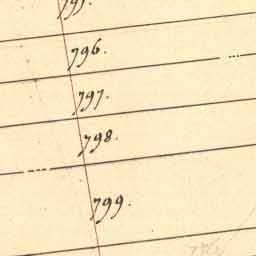 795.
796.
797.
798.
799.